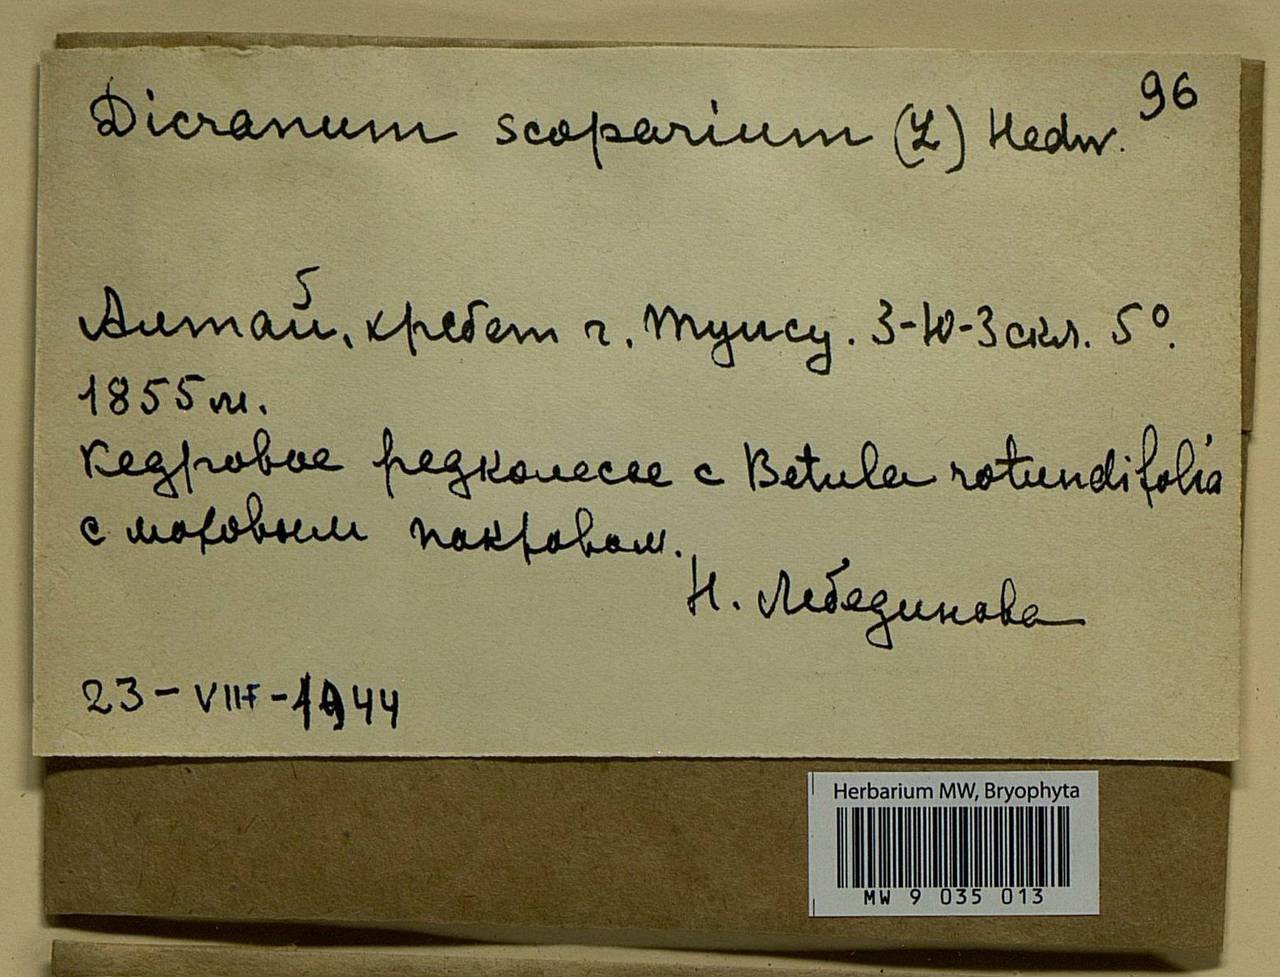 96
Dicranum scoparium (L) Hedw.
Алтай, хребет г. Туису. З-Ю-З скл. 5°.
1855 м.
Кедровое редколесье с Betula rotundifolia
с моховым покровом.
Н. Лебединова
23-VIII-1944
Herbarium MW, Bryophyta
MW 9 035 013